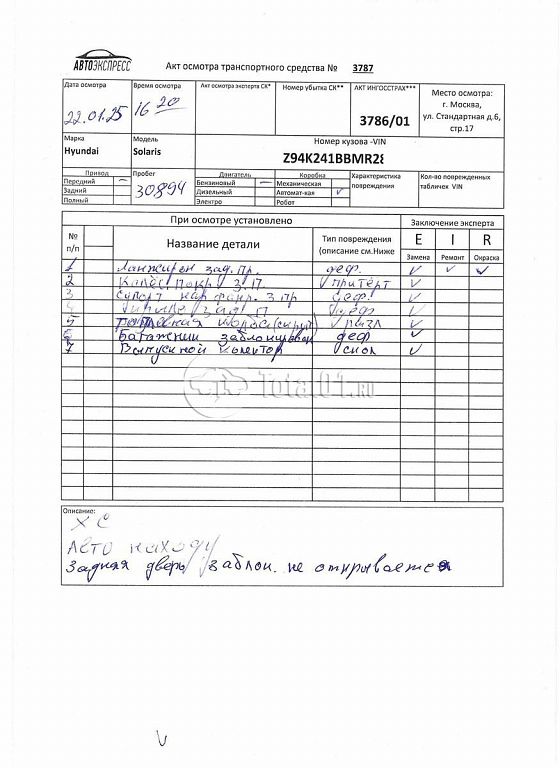 АВТОЭКСПРЕСС
Акт осмотра транспортного средства № 3787
Дата осмотра Время осмотра Акт осмотра эксперта СК* Номер убытка СК** АКТ ИНГОССТРАХ*** Место осмотра:
22.01.25 16 20 3786/01 г. Москва,
ул. Стандартная д.6,
стр.17
Марка Модель Номер кузова -VIN
Hyundai Solaris Z94K241BBMR28
Привод Пробег Двигатель Коробка Характеристика Кол-во поврежденных
Передний – 30894 Бензиновый – Механическая повреждения табличек VIN
Задний Дизельный Автомат-кая
Полный Электро Робот
При осмотре установлено Заключение эксперта
№ Название детали Тип повреждения E I R
п/п (описание см.Ниже Замена Ремонт Окраска
1 Ланжирон зад. пр. деф.
2 покр З П притёрт
3 З пр деф.
4 зад П деф
5
6 Багажник деф
7 Выпускной скол
Total01.ru
Описание:
ХС
Авто находу
Задняя дверь заблок. не открывается